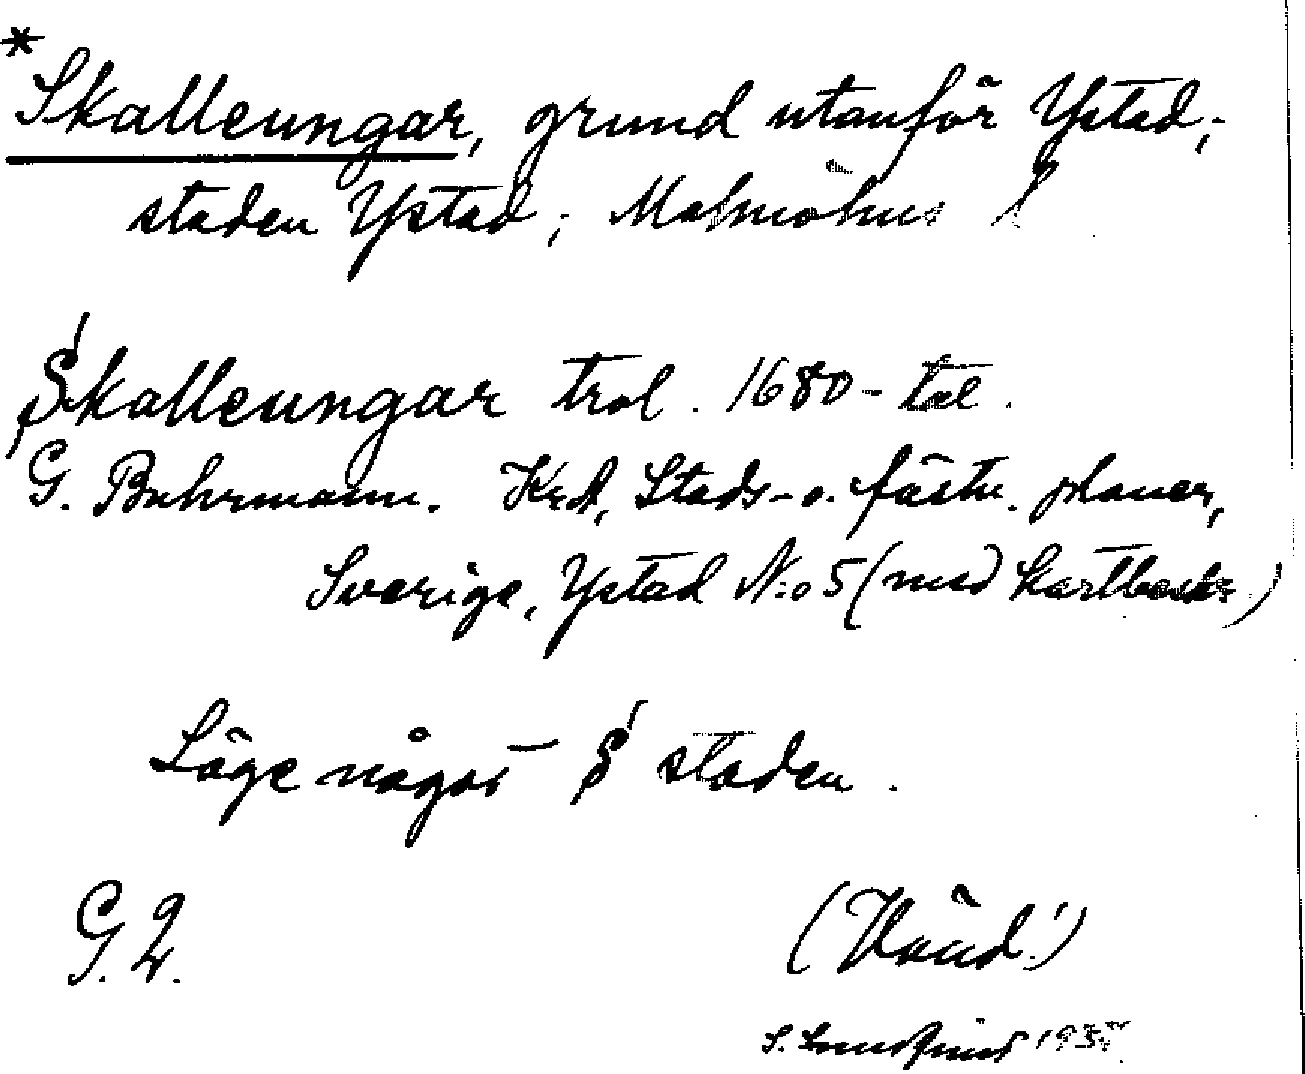 *Skalleungar, grund utanför Ystad,
staden Ystad, Malmöhus l
Skalleungar trol. 1680-tal.
G. Buhrmann. KrA, Stads- o. fästn. planer,
Sverige, Ystad N:o 5 (med kartbeskr.)
Läge något S staden.
G. 2.
(Vänd!)
S. 193